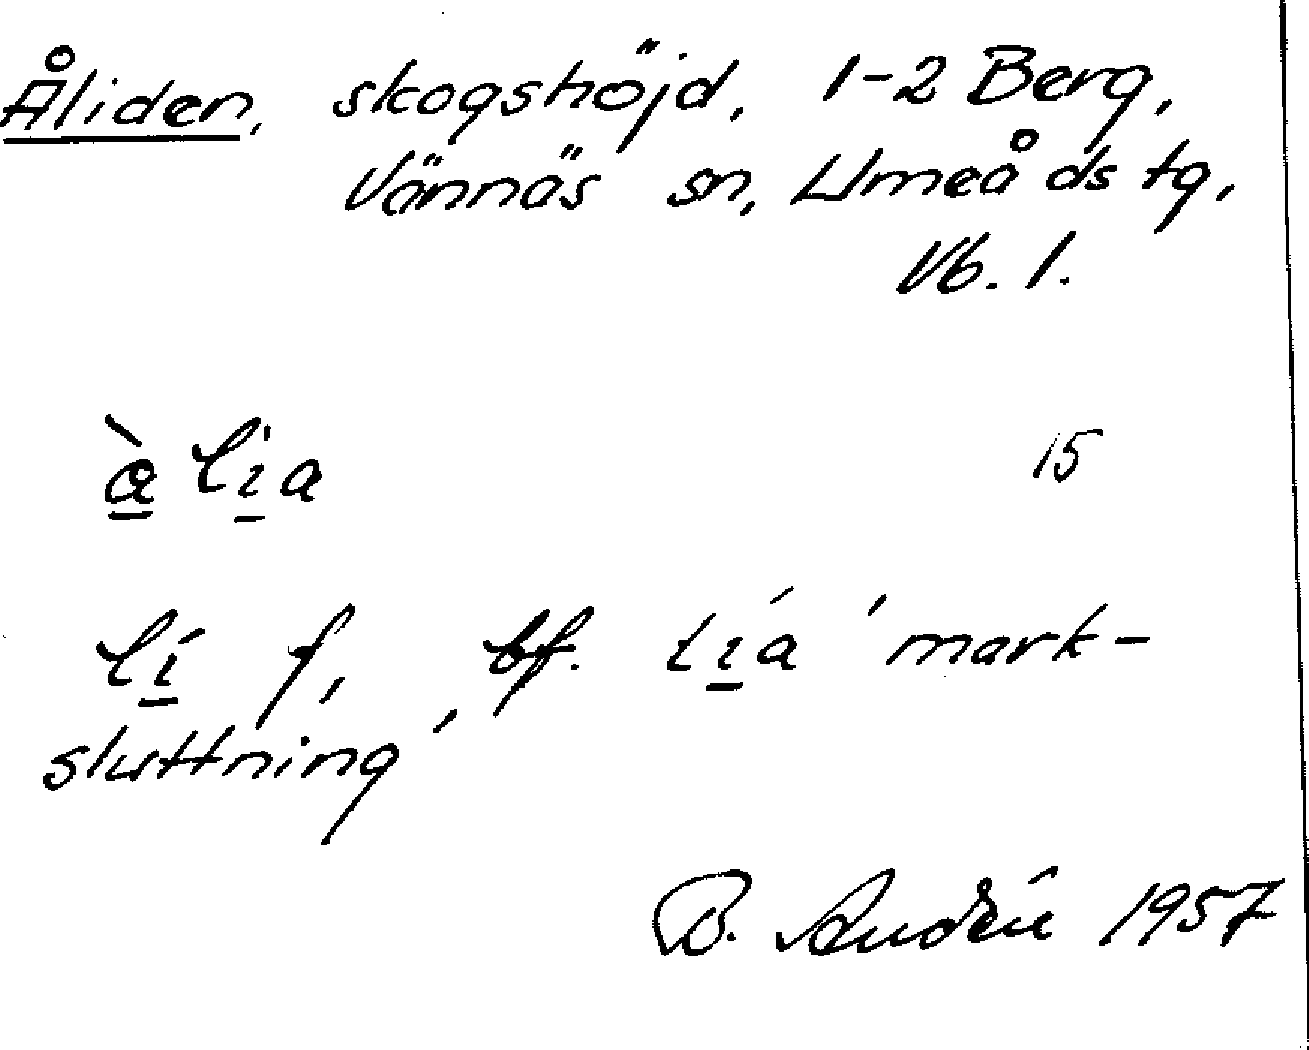 Åliden, skogshöjd, 1-2 Berg,
Vännäs sn, Umeå ds tg,
Vb. l.
à lia 15
lí f, bf. lía 'mark-
sluttning'
B. Andrén 1957